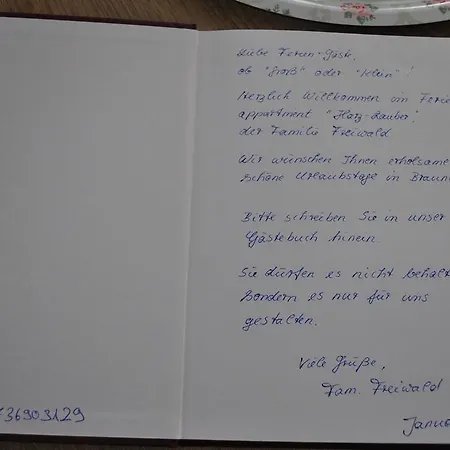 Liebe Ferien-Gäste,
ob "Groß" oder "Klein"!
Herzlich Willkommen im Ferie
appartment "Harz-Zauber"
der Familie Freiwald
Wir wünschen Ihnen erholsame
schöne Urlaubstage in Braun
Bitte schreiben Sie in unser
Gästebuch hinein.
Sie dürfen es nicht behalt
Sondern es nur für uns
gestalten.
Viele Grüße,
Fam. Freiwald
Janua
36903129